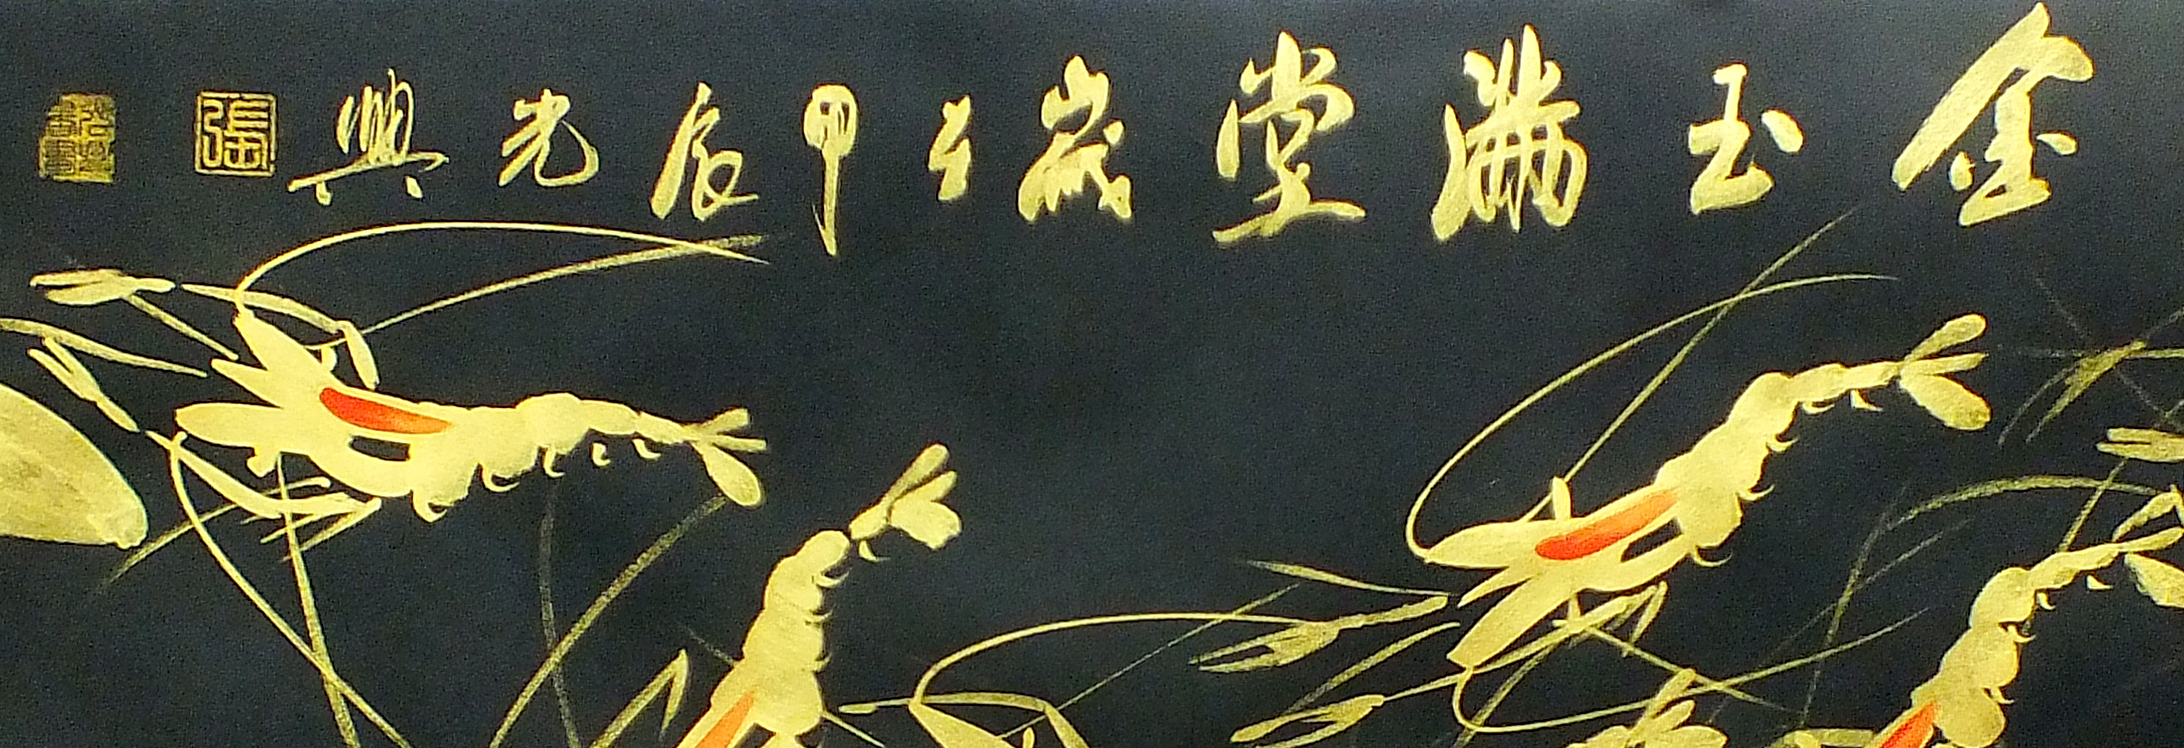 金玉滿堂歲于甲辰光興
張